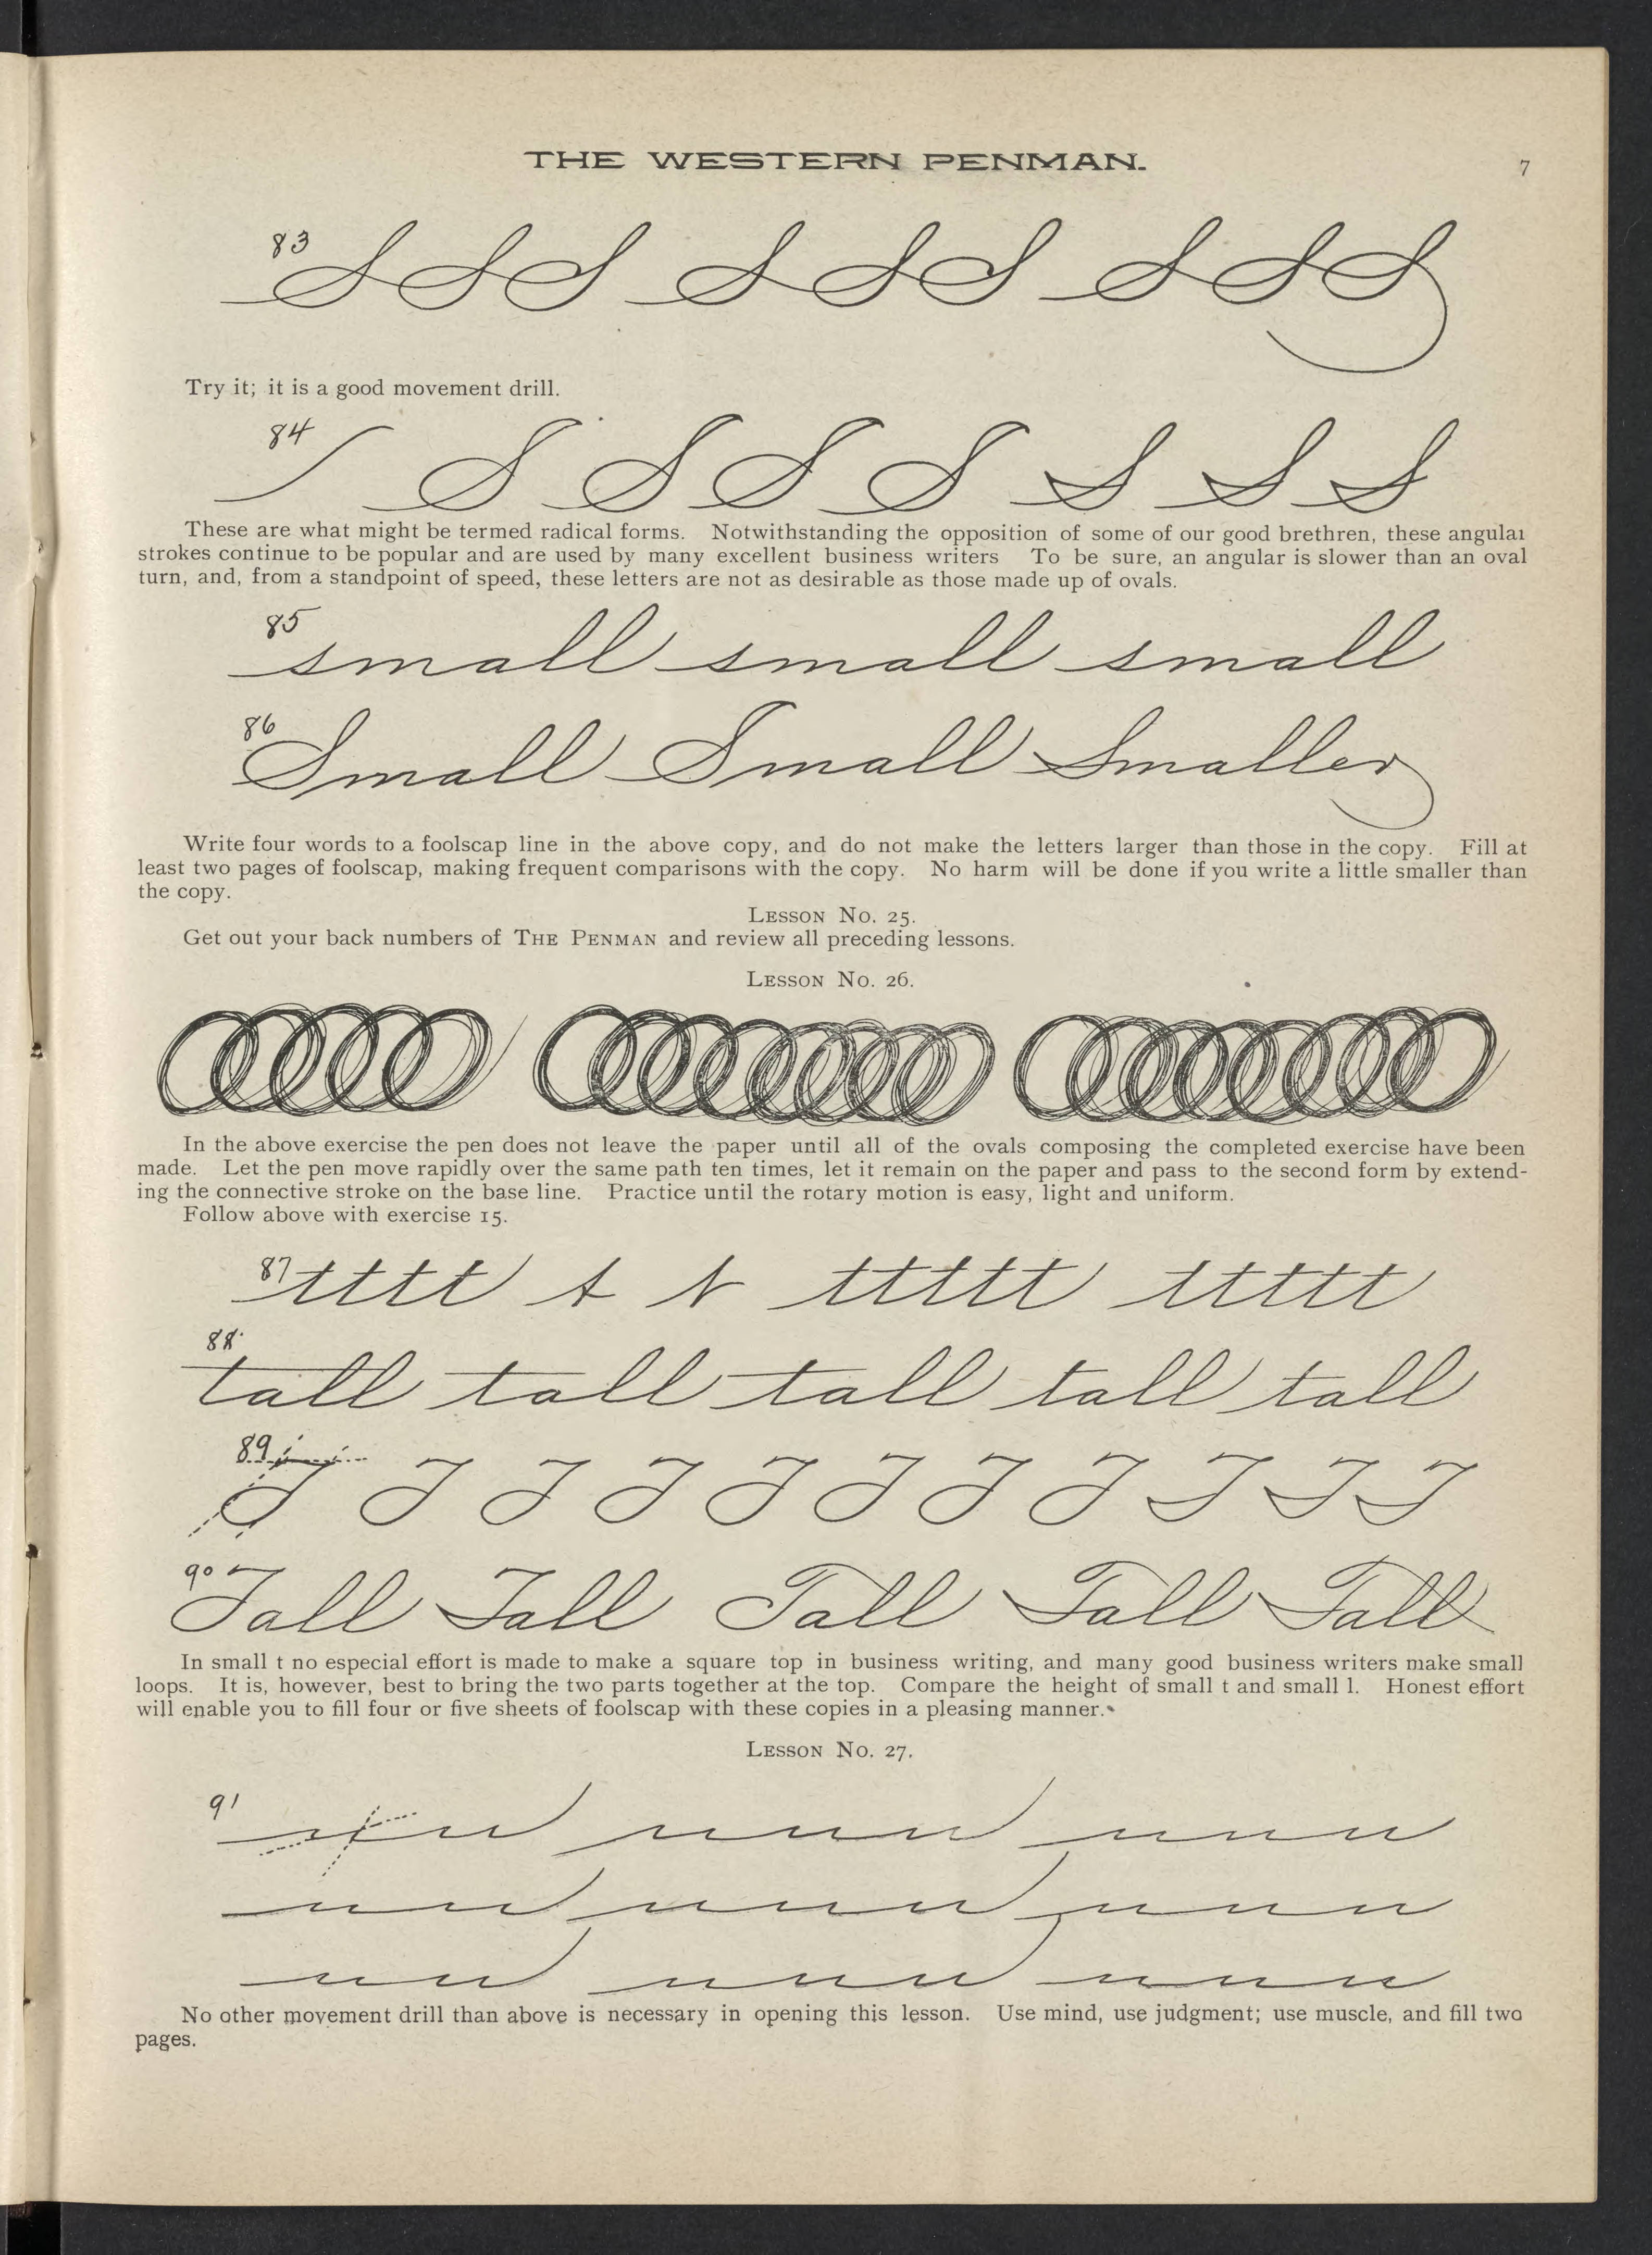 THE WESTERN PENMAN.
7
83
S S S S S S S S S
Try it; it is a good movement drill.
84
S S S S S S S
These are what might be termed radical forms. Notwithstanding the opposition of some of our good brethren, these angular
strokes continue to be popular and are used by many excellent business writers To be sure, an angular is slower than an oval
turn, and, from a standpoint of speed, these letters are not as desirable as those made up of ovals.
85
small small small
86
Small Small Smaller
Write four words to a foolscap line in the above copy, and do not make the letters larger than those in the copy. Fill at
least two pages of foolscap, making frequent comparisons with the copy. No harm will be done if you write a little smaller than
the copy.
LESSON NO. 25.
Get out your back numbers of THE PENMAN and review all preceding lessons.
LESSON NO. 26.
In the above exercise the pen does not leave the paper until all of the ovals composing the completed exercise have been
made. Let the pen move rapidly over the same path ten times, let it remain on the paper and pass to the second form by extend-
ing the connective stroke on the base line. Practice until the rotary motion is easy, light and uniform.
Follow above with exercise 15.
87
tttt t t ttttt ttttt
88
tall tall tall tall tall
89
T T T T T T T T T T T
90
Tall Tall Tall Tall Tall
In small t no especial effort is made to make a square top in business writing, and many good business writers make small
loops. It is, however, best to bring the two parts together at the top. Compare the height of small t and small l. Honest effort
will enable you to fill four or five sheets of foolscap with these copies in a pleasing manner.
LESSON NO. 27.
91
No other movement drill than above is necessary in opening this lesson. Use mind, use judgment; use muscle, and fill two
pages.